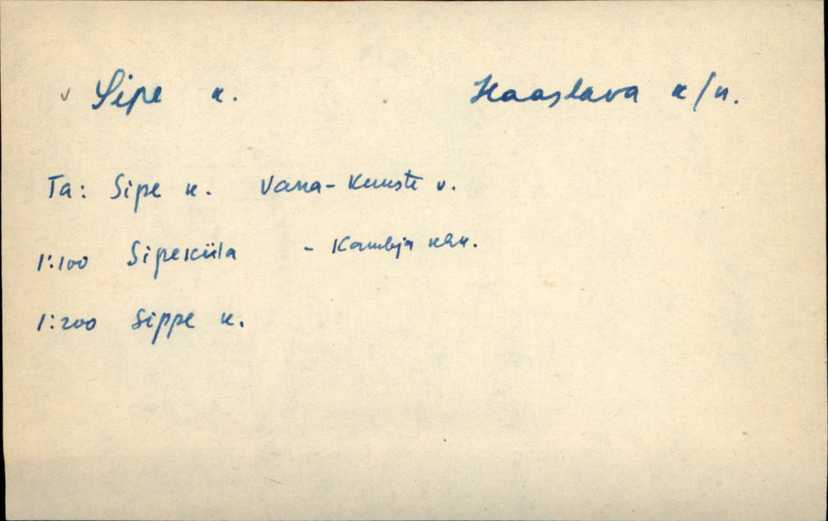 v Sipe k. Haaslava k/n.
Ta: Sipe k. Vana-Kuuste v.
1:100 Sipeküla - Kambja khk.
1:200 Sippe k.